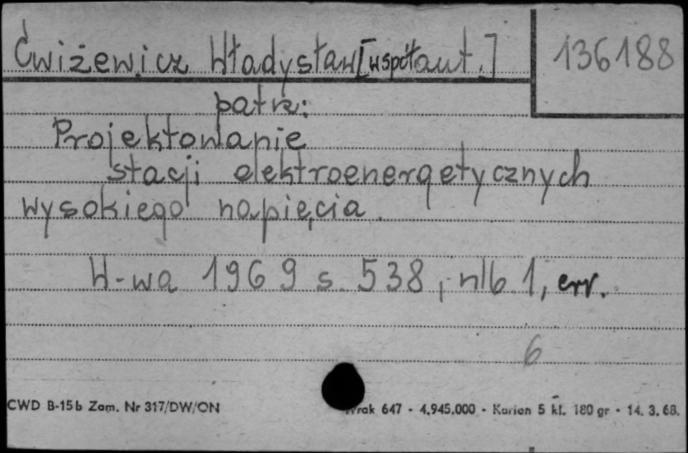 Ćwiżewicz Władysław [współaut.]
136188
patrz:
Projektowanie
stacji elektroenergetycznych
wysokiego napięcia.
W-wa 1969 s. 538, nlb 1, err.
6
CWD B-15b Zam. Nr 317/DW/ON
647 - 4.945.000 - Karton 5 kl. 180 gr - 14. 3. 68.